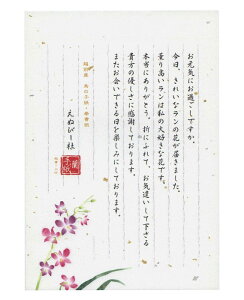 お元気にお過ごしですか。
今日、きれいなランの花が届きました。
香り高いランは私の大好きな花です。
本当にありがとう。折にふれて、お気遣いして下さる
貴方の優しさに感謝しております。
またお会いできる日を楽しみにしております。
えぬびー社